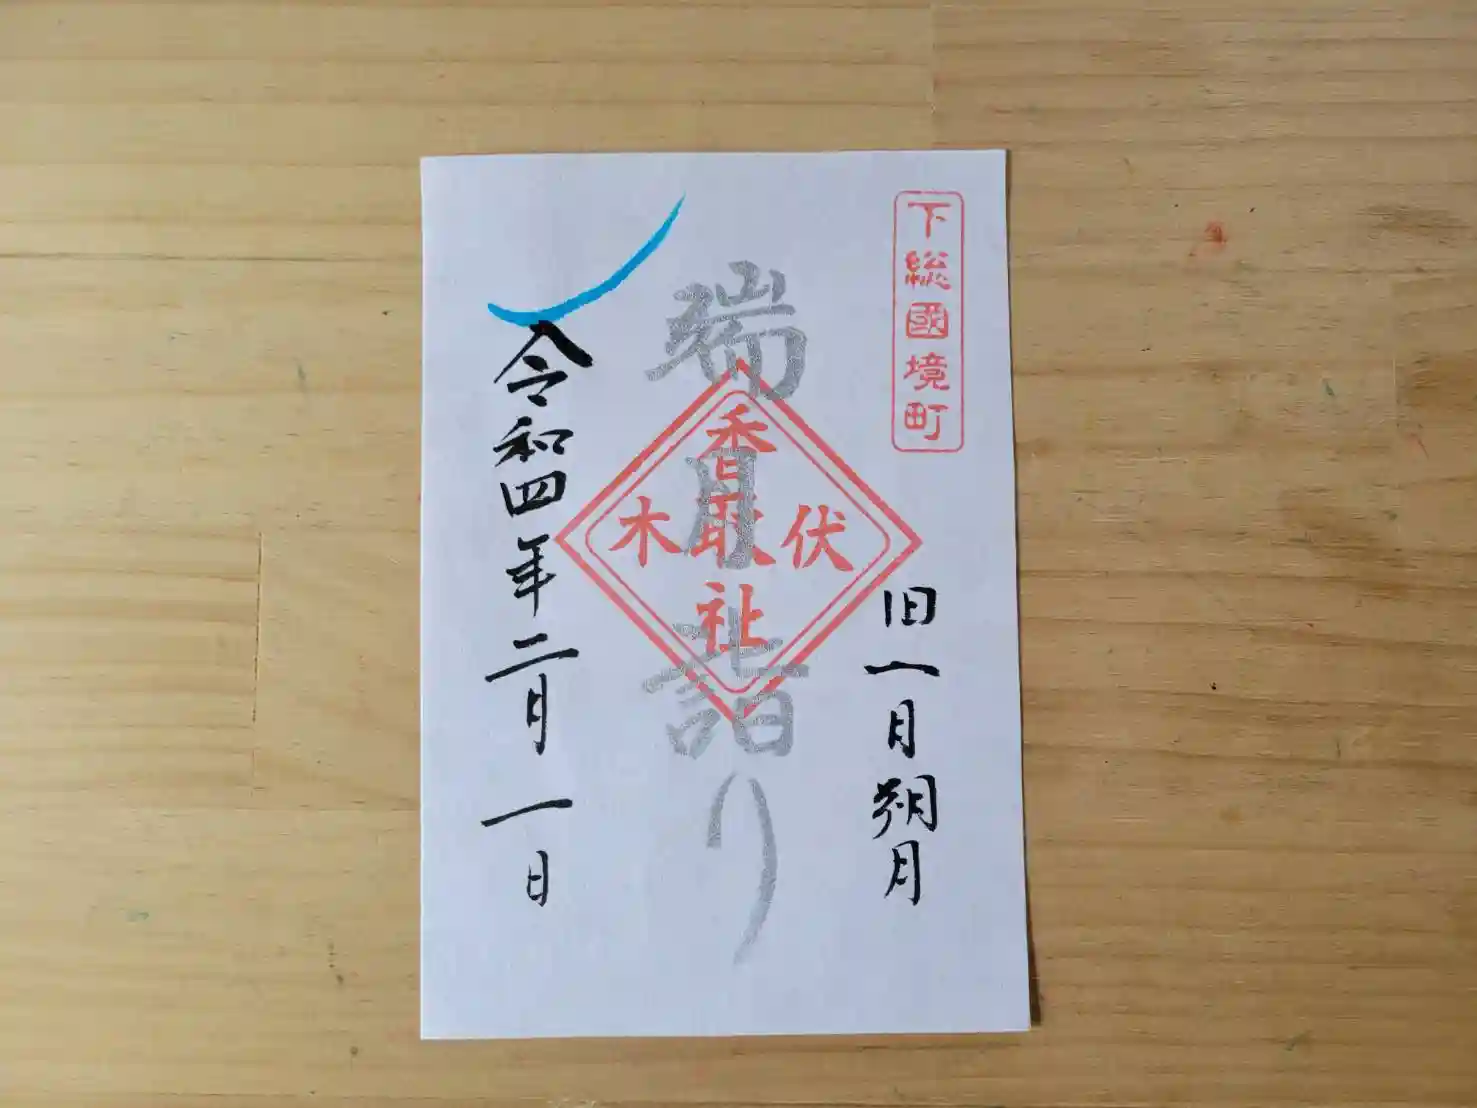 下総國境町
旧一月朔月
端月詣り
伏木
香取社
令和四年二月一日